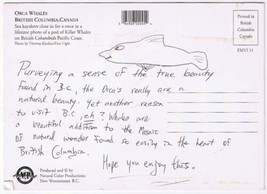 ORCA WHALES
BRITISH COLUMBIA, CANADA
Sea kayakers close in for a once in a
lifetime photo of a pod of Killer Whales
on British Columbia's Pacific Coast.
Photo by Thomas Kitchin/First Light
Printed in
British
Columbia
Canada
Purveying a sense of the true beauty
found in B.C., the Orca's really are a
natural beauty. Yet another reason
to visit B.C. eh? Works are
a beautiful addition to the Mosaic
of natural wonder found so enticing in the heart of
British Columbia.
Hope you enjoy this.
Produced and © by
Natural Color Productions
New Westminster, B.C.